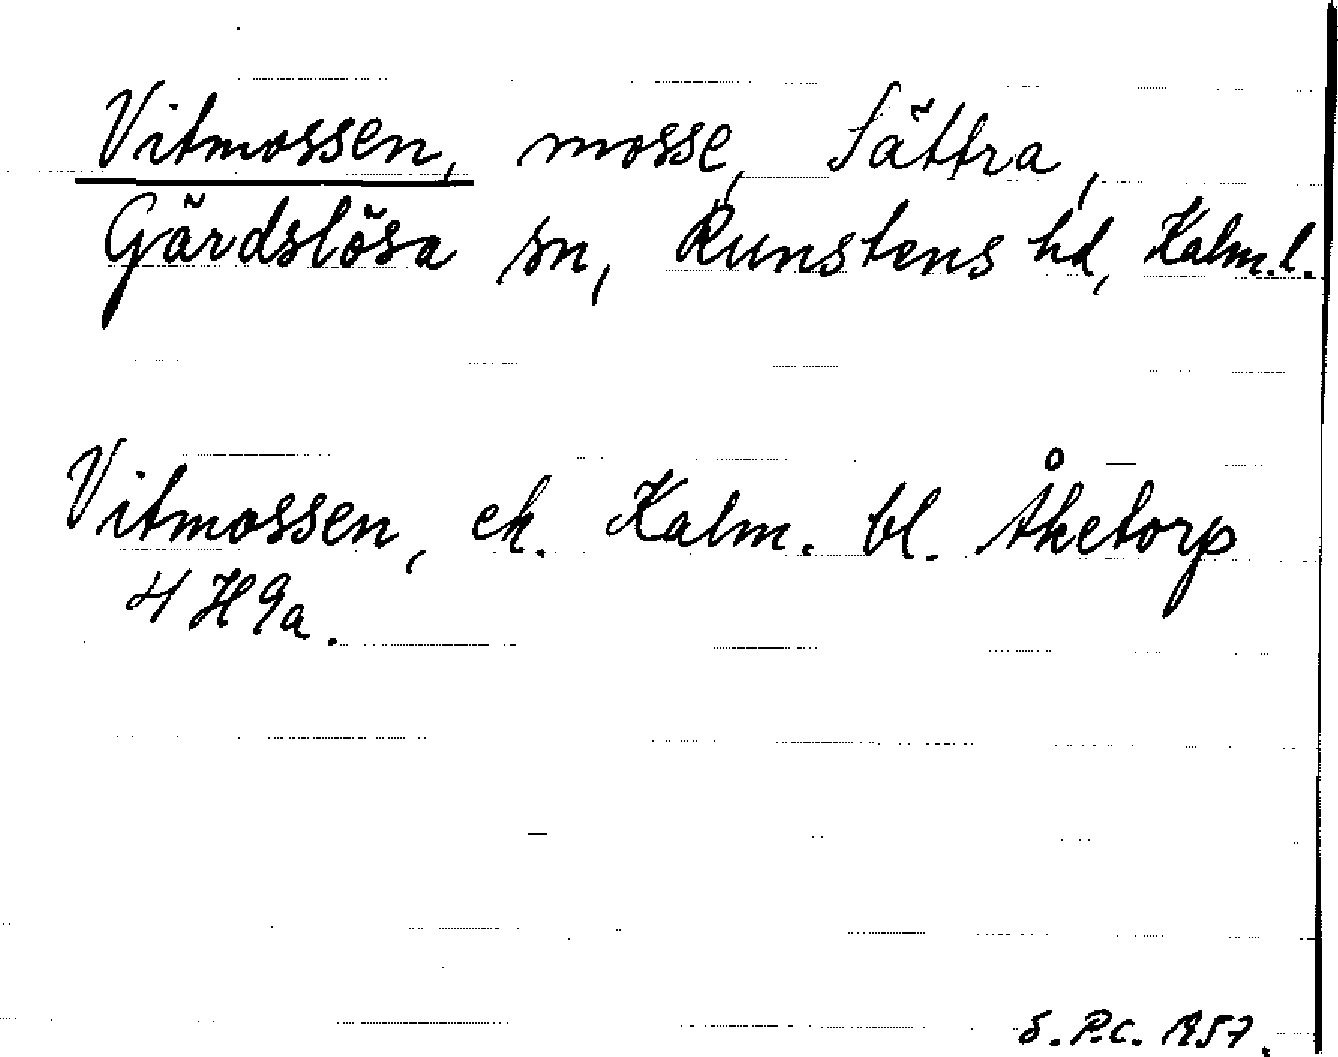 Vitmossen, mosse, Sättra,
Gärdslösa sn, Runstens hd, Kalm.l.
Vitmossen, ek. Kalm. bl. Åketorp
4 H 9a.
S.P.C. 1957.